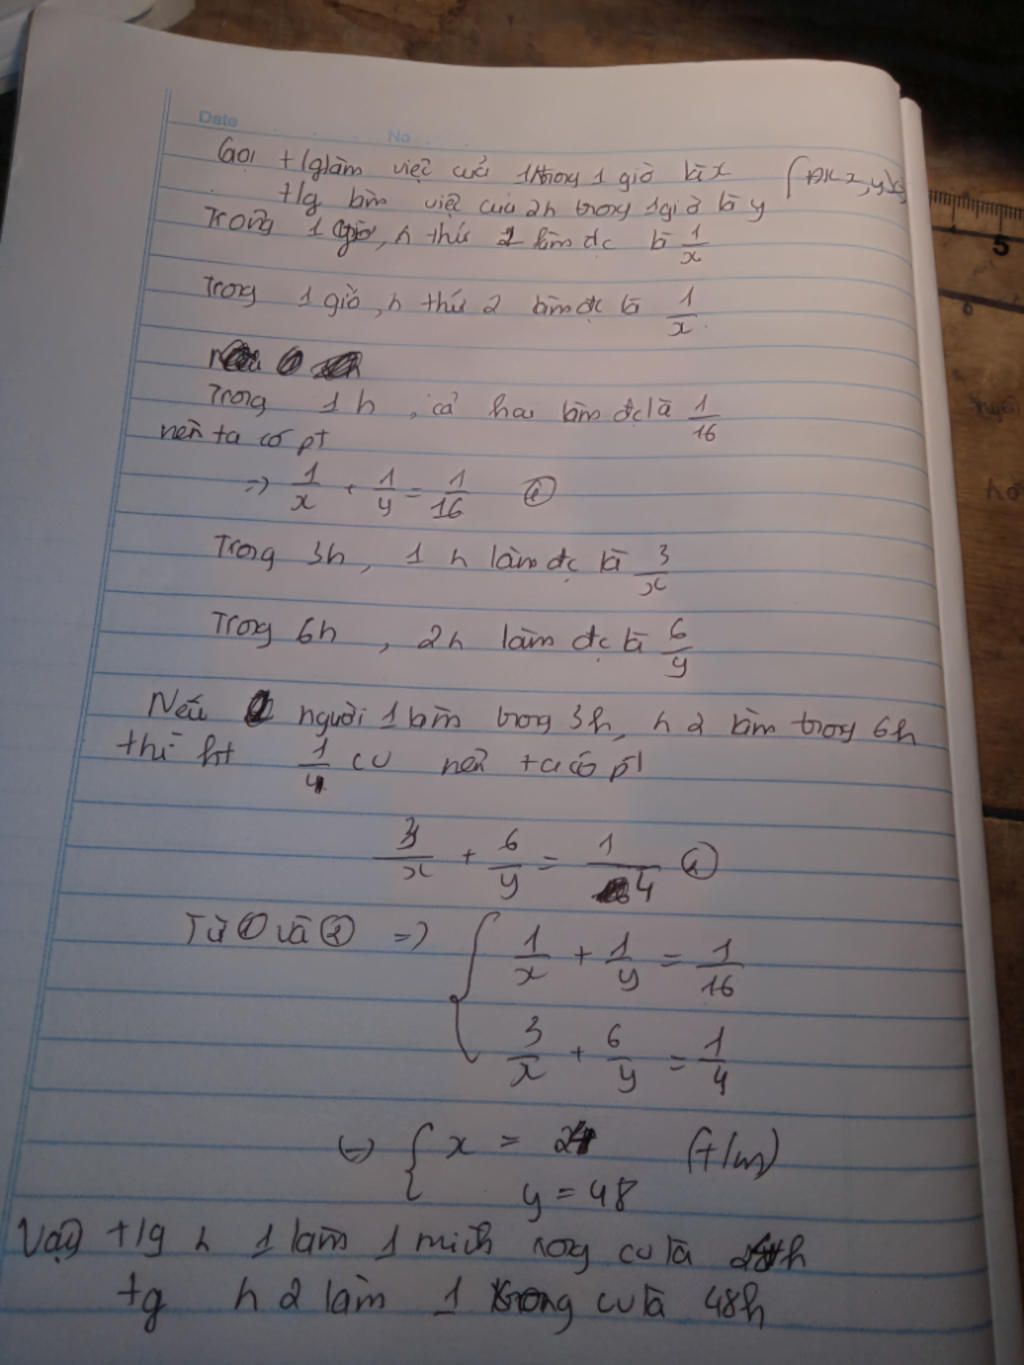 Date No
Gọi tlg làm việc của 1h trong 1 giờ là x (ĐK x, y
tlg làm việc của 2h trong 1 giờ là y
Trong 1 giờ, n thứ 1 làm đc là 1/x
Trong 1 giờ, n thứ 2 làm đc là 1/x
Trong 1h, cả hai làm đc là 1/16
nên ta có pt
=> 1/x + 1/y = 1/16 ①
Trong 3h, 1 n làm đc là 3/x
Trong 6h, 2n làm đc là 6/y
Nếu người 1 làm trong 3h, n 2 làm trong 6h
thì ht 1/4 cv nên ta có pt
3/x + 6/y = 1/4 ②
Từ ① và ② => { 1/x + 1/y = 1/16
3/x + 6/y = 1/4
(=) { x = 24 (t/m)
y = 48
5
6
Vậy tlg n 1 làm 1 mình xong cv là 24h
tg n 2 làm 1 xong cv là 48h